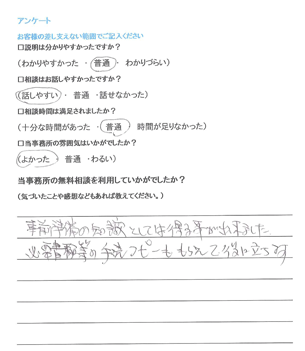 アンケート
お客様の差し支えない範囲でご記入ください
□説明は分かりやすかったですか？
（わかりやすかった ・ 普通 ・ わかりづらい）
□相談はお話しやすかったですか？
（話しやすい ・ 普通 ・ 話せなかった）
□相談時間は満足されましたか？
（十分な時間があった ・ 普通 ・ 時間が足りなかった）
□当事務所の雰囲気はいかがでしたか？
（よかった ・ 普通 ・ わるい）
当事務所の無料相談を利用していかがでしたか？
（気づいたことや感想などもあれば教えてください。）
事前準備の知識としては得る事が出来ました
必要書類等の手続コピーももらえて役に立ちます